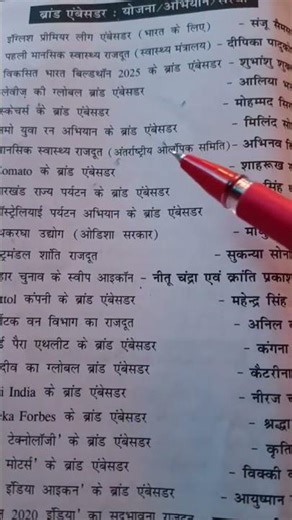 ब्रांड एंबेसडर : योजना/अभियान/संस्था
इंग्लिश प्रीमियर लीग एंबेसडर (भारत के लिए) - संजू सैमसन
पहली मानसिक स्वास्थ्य राजदूत (स्वास्थ्य मंत्रालय) - दीपिका पादुको
विकसित भारत बिल्डथॉन 2025 के ब्रांड एंबेसडर - शुभांशु शु
लेवीज की ग्लोबल ब्रांड एंबेसडर - आलिया भ
स्केचर्स के ब्रांड एंबेसडर - मोहम्मद सि
मो युवा रन अभियान के ब्रांड एंबेसडर - मिलिंद सो
मानसिक स्वास्थ्य राजदूत (अंतर्राष्ट्रीय ओलंपिक समिति)- अभिनव बि
omato के ब्रांड एंबेसडर - शाहरूख ख
रखंड राज्य पर्यटन के ब्रांड एंबेसडर सिंह
ऑस्ट्रेलियाई पर्यटन अभियान के ब्रांड एंबेसडर
थकरघा उद्योग (ओडिशा सरकार)
ट्रमंडल शांति राजदूत - सुकन्या सोना
हार चुनाव के स्वीप आइकॉन - नीतू चंद्रा एवं क्रांति प्रकाश
ttol कंपनी के ब्रांड एंबेसडर - महेन्द्र सिंह
टक वन विभाग का राजदूत - अनिल
पैरा एथलीट के ब्रांड एंबेसडर - कंगना
दीव का ग्लोबल ब्रांड एंबेसडर - कैटरीना
i India के ब्रांड एंबेसडर - नीरज च
eka Forbes के ब्रांड एंबेसडर - श्रद्धा
टेक्नोलॉजी' के ब्रांड एंबेसडर - कृति
मोटर्स' के ब्रांड एंबेसडर - विक्की
इंडिया आइकन' के ब्रांड एंबेसडर - आयुष्मान
2020 इंडिया' का सद्भावना राजदूत